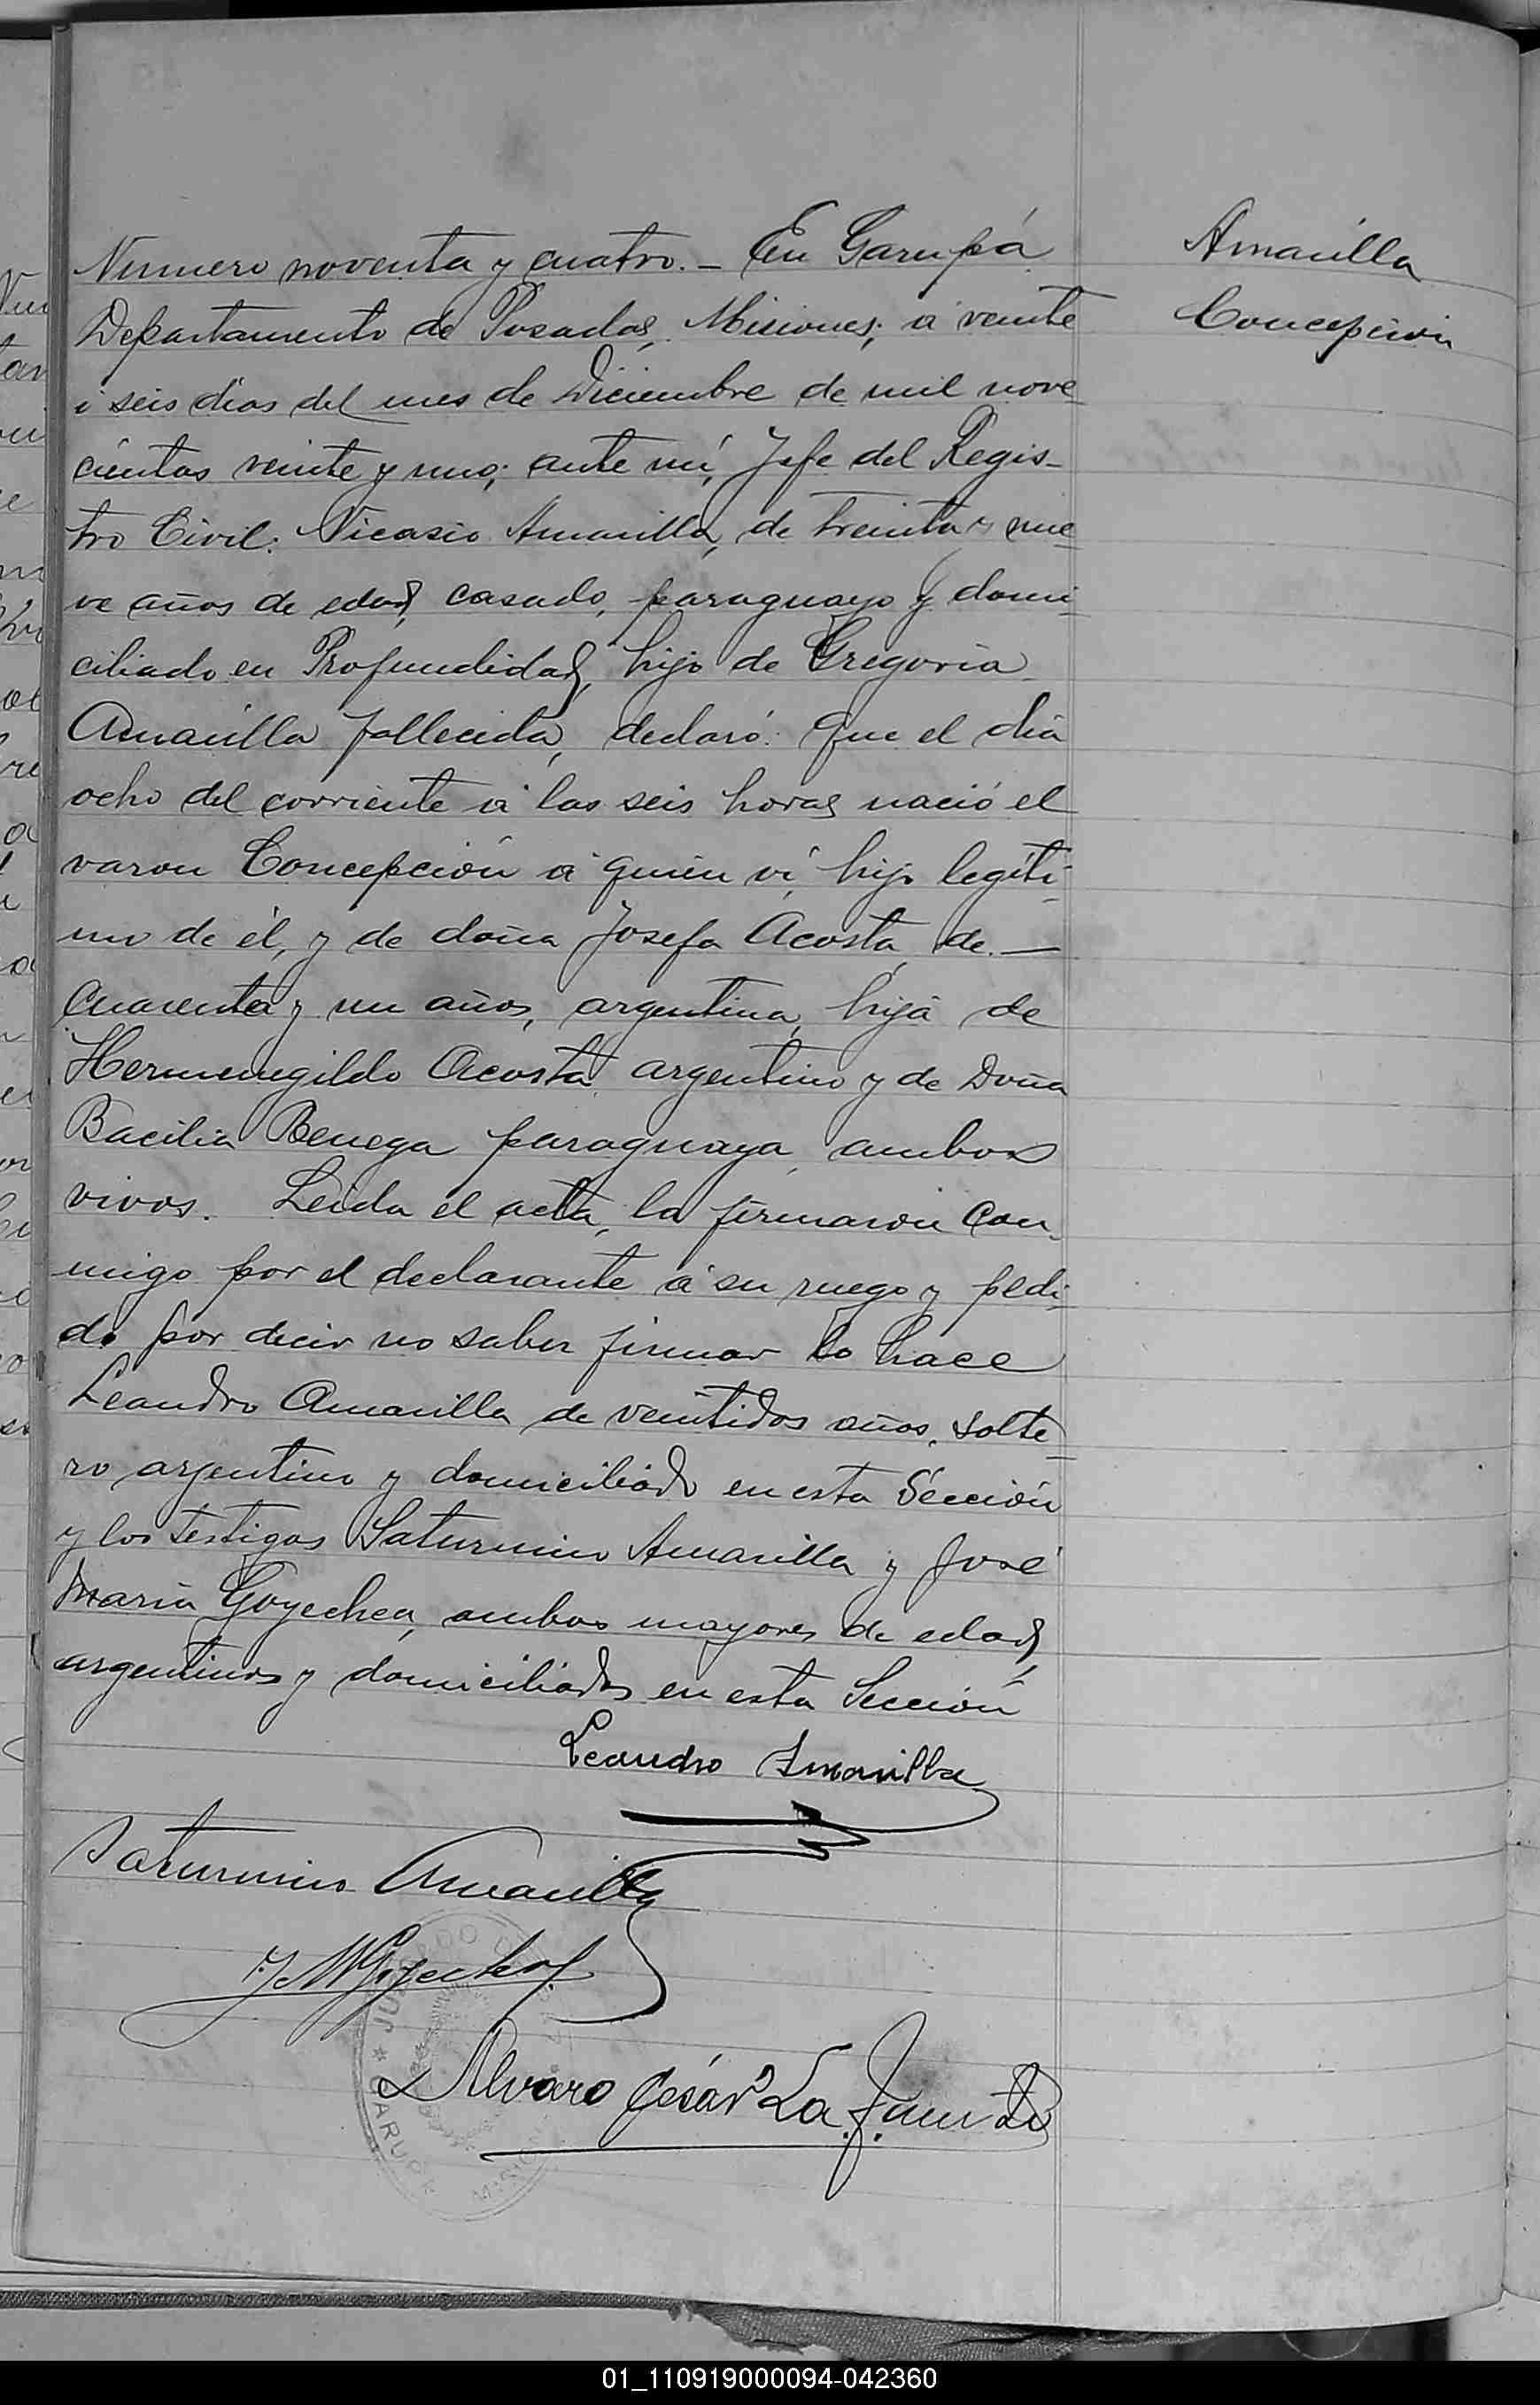 Numero noventa y cuatro.- En Garupá
Departamento de Posadas, Misiones; á veinte
i seis dias del mes de Diciembre de mil nove
cientos veinte y uno; ante mí, Jefe del Regis-
tro Civil: Nicasio Amarilla, de treinta y nue
ve años de edad, casado, paraguayo y domi-
ciliado en Profundidad, hijo de Gregoria
Amarilla fallecida, declaró: Que el dia
ocho del corriente á las seis horas nació el
varon Concepción á quien vi, hijo legiti-
mo de él, y de doña Josefa Acosta, de.—
cuarenta y un años, argentina, hija de
Hermenegildo Acosta argentino y de Doña
Bacilia Benega paraguaya, ambos
vivos. Leida el acta, la firmaron con
migo por el declarante á su ruego y pedi-
do por decir no saber firmar lo hace
Leandro Amarilla de veintidos años, solte-
ro argentino y domiciliado en esta Sección
y los testigos Saturnino Amarilla y José
Maria Goyechea, ambos mayores de edad,
argentinos y domiciliados en esta Sección
Leandro Amarilla
Saturnino Amarilla
J M Goyechea
Alvaro César La
Amarilla
Concepción
JUZGADO DE
GARUPA
MISIONES
01_110919000094-042360